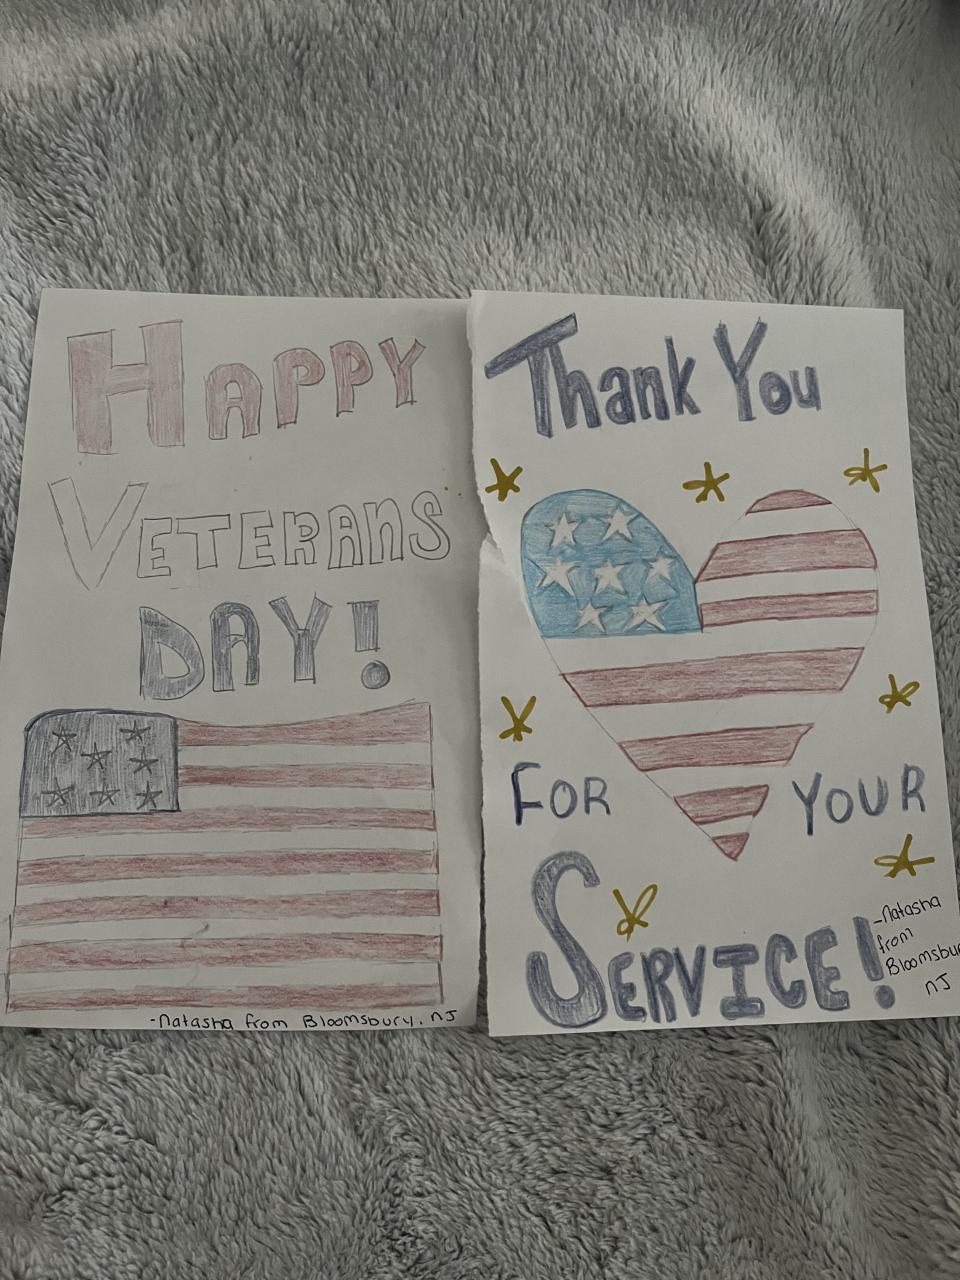 HAPPY
VETERANS
DAY!
-Natasha from Bloomsbury, NJ
Thank You
FOR YOUR
SERVICE!
-Natasha
from
Bloomsbu
NJ